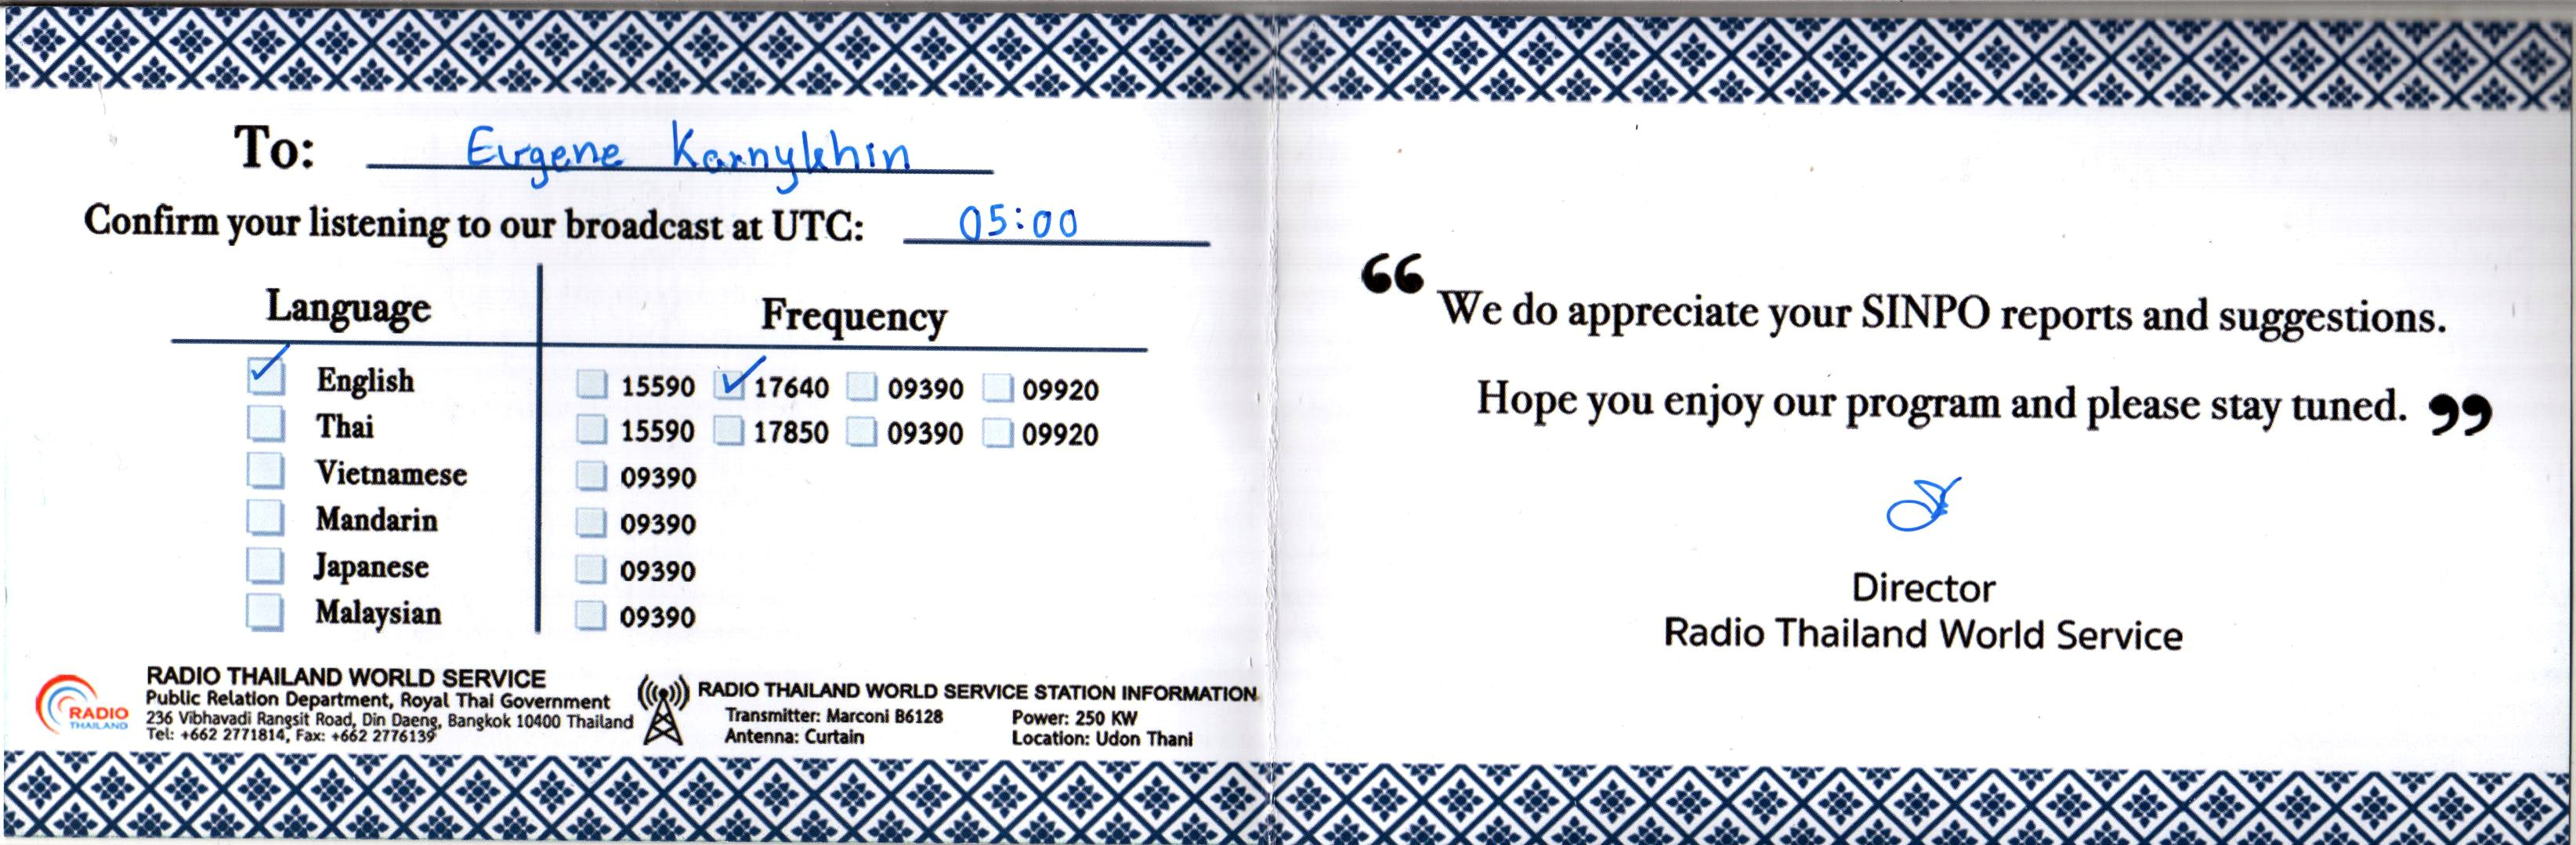 To: Eugene Karnykhin
Confirm your listening to our broadcast at UTC: 05:00
Language Frequency
English 15590 17640 09390 09920
Thai 15590 17850 09390 09920
Vietnamese 09390
Mandarin 09390
Japanese 09390
Malaysian 09390
RADIO THAILAND
RADIO THAILAND WORLD SERVICE
Public Relation Department, Royal Thai Government
236 Vibhavadi Rangsit Road, Din Daeng, Bangkok 10400 Thailand
Tel: +662 2771814, Fax: +662 2776139
RADIO THAILAND WORLD SERVICE STATION INFORMATION
Transmitter: Marconi B6128 Power: 250 KW
Antenna: Curtain Location: Udon Thani
“We do appreciate your SINPO reports and suggestions.
Hope you enjoy our program and please stay tuned.”
Director
Radio Thailand World Service